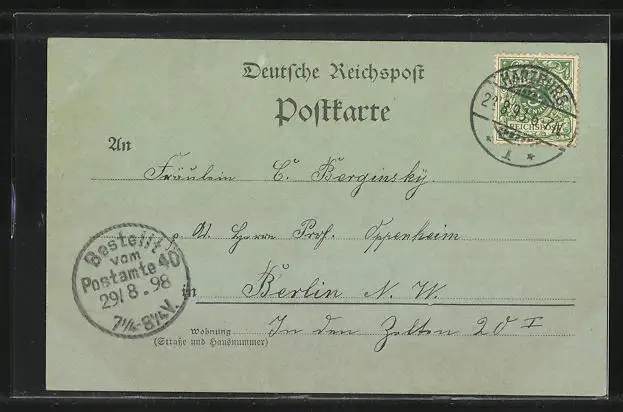 Deutsche Reichspost
Postkarte
HARZBURG
8.98.
REICHSPOST
1
An
Fräulein C. Berginsky.
p. Ad. Herrn Prof. Oppenheim
Bestellt
vom
Postamte 40
29/8.98
7¼-8¼V.
in Berlin N. W.
Wohnung In den Zelten 20 I
(Straße und Hausnummer)